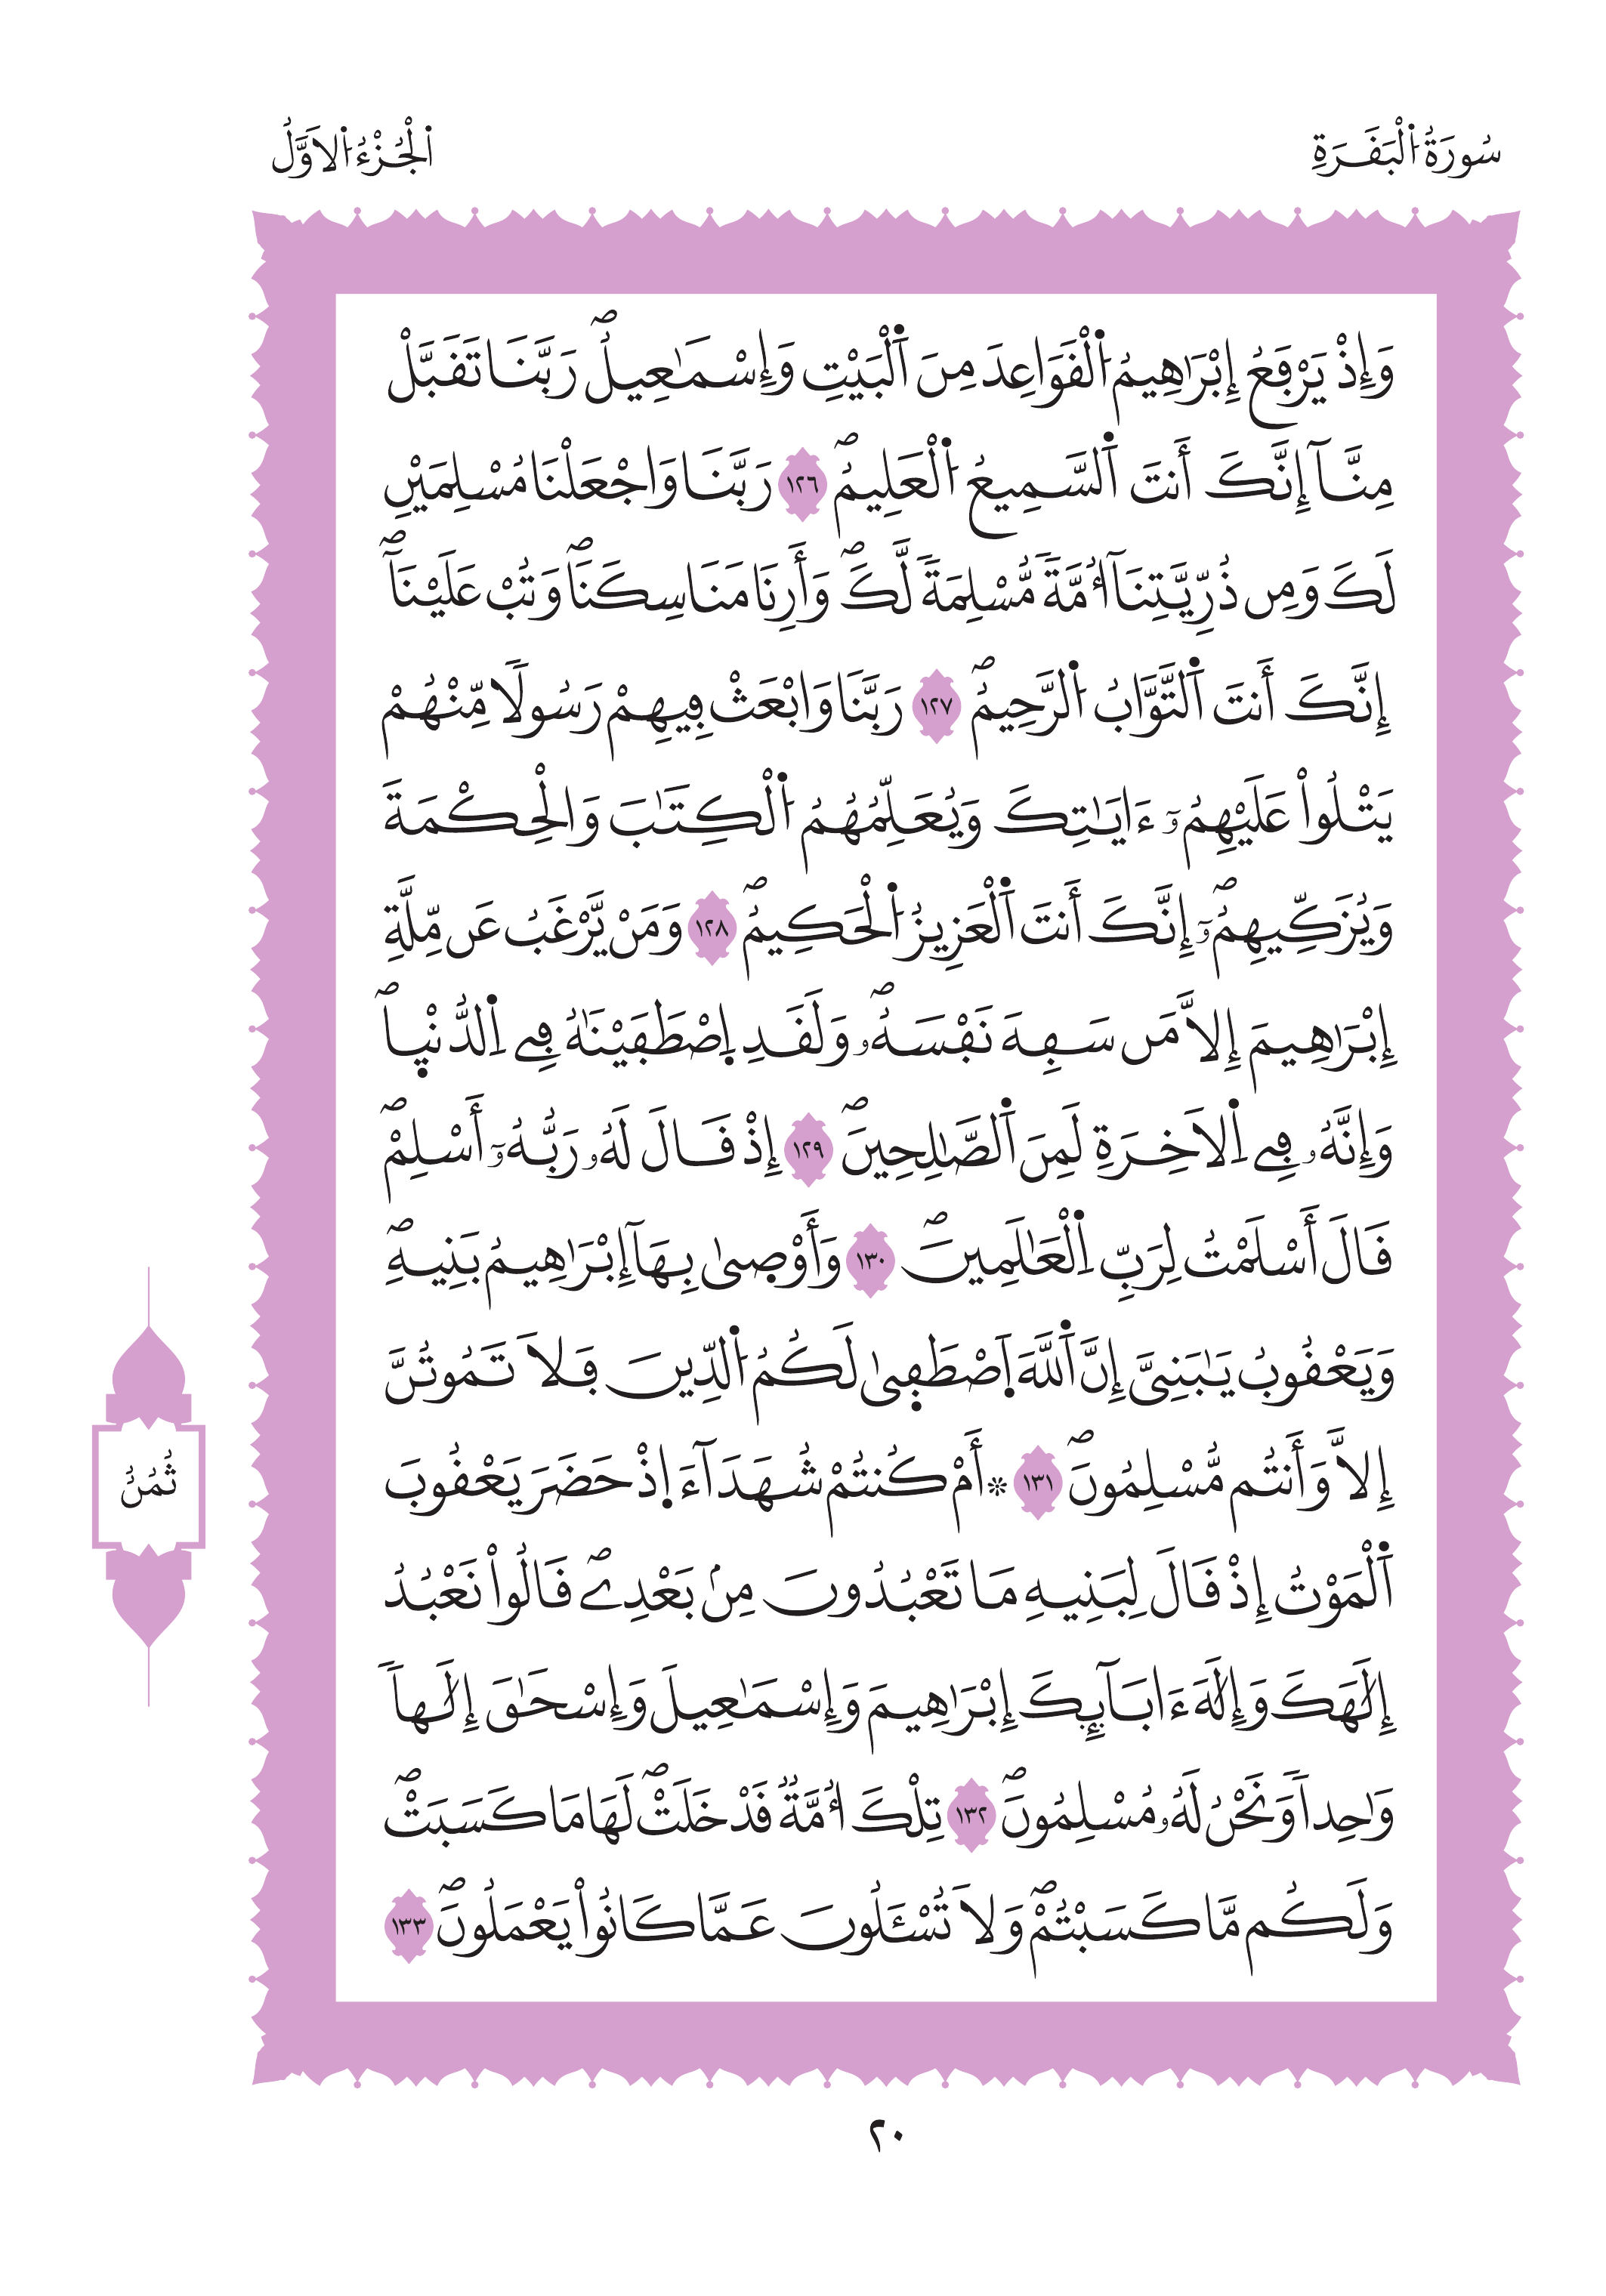 سُورَةُ اُ۬لْبَقَرَةِ
اُ۬لْجُزْءُ اُ۬لَاوَّلُ
وَإِذْ يَرْفَعُ إِبْرَٰهِيمُ اُ۬لْقَوَاعِدَ مِنَ اَ۬لْبَيْتِ وَإِسْمَٰعِيلُۖ رَبَّنَا تَقَبَّلْ
مِنَّآ إِنَّكَ أَنتَ اَ۬لسَّمِيعُ اُ۬لْعَلِيمُۖ ١٢٦ رَبَّنَا وَاجْعَلْنَا مُسْلِمَيْنِ
لَكَ وَمِن ذُرِّيَّتِنَآ أُمَّةٗ مُّسْلِمَةٗ لَّكَۖ وَأَرِنَا مَنَاسِكَنَاۖ وَتُبْ عَلَيْنَآۖ
إِنَّكَ أَنتَ اَ۬لتَّوَّابُ اُ۬لرَّحِيمُۖ ١٢٧ رَبَّنَا وَابْعَثْ فِيهِمْ رَسُولٗا مِّنْهُمْ
يَتْلُواْ عَلَيْهِمُۥٓ ءَايَٰتِكَ وَيُعَلِّمُهُمُ اُ۬لْكِتَٰبَ وَالْحِكْمَةَ
وَيُزَكِّيهِمُۥٓۖ إِنَّكَ أَنتَ اَ۬لْعَزِيزُ اُ۬لْحَكِيمُۖ ١٢٨ وَمَنْ يَّرْغَبُ عَن مِّلَّةِ
إِبْرَٰهِيمَ إِلَّا مَن سَفِهَ نَفْسَهُۥۖ وَلَقَدِ اِ۪صْطَفَيْنَٰهُ فِے اِ۬لدُّنْي۪اۖ
وَإِنَّهُۥ فِے اِ۬لَاخِرَةِ لَمِنَ اَ۬لصَّٰلِحِينَۖ ١٢٩ إِذْ قَالَ لَهُۥ رَبُّهُۥٓ أَسْلِمْۖ
قَالَ أَسْلَمْتُ لِرَبِّ اِ۬لْعَٰلَمِينَۖ ١٣٠ وَأَوْص۪ىٰ بِهَآ إِبْرَٰهِيمُ بَنِيهِۖ
وَيَعْقُوبُ يَٰبَنِيَّ إِنَّ اَ۬للَّهَ اَ۪صْطَف۪ىٰ لَكُمُ اُ۬لدِّينَ فَلَا تَمُوتُنَّ
إِلَّا وَأَنتُم مُّسْلِمُونَۖ ١٣١ ۞ أَمْ كُنتُمْ شُهَدَآءَ ا۪ذْ حَضَرَ يَعْقُوبَ
اَ۬لْمَوْتُ إِذْ قَالَ لِبَنِيهِ مَا تَعْبُدُونَ مِنۢ بَعْدِےۖ قَالُواْ نَعْبُدُ
إِلَٰهَكَ وَإِلَٰهَ ءَابَآئِكَ إِبْرَٰهِيمَ وَإِسْمَٰعِيلَ وَإِسْحَٰقَ إِلَٰهاٗ
وَٰحِداٗ وَنَحْنُ لَهُۥ مُسْلِمُونَۖ ١٣٢ تِلْكَ أُمَّةٞ قَدْ خَلَتْۖ لَهَا مَا كَسَبَتْۖ
وَلَكُم مَّا كَسَبْتُمْۖ وَلَا تُسْـَٔلُونَ عَمَّا كَانُواْ يَعْمَلُونَۖ ١٣٣
ثُمُنُ
٢٠